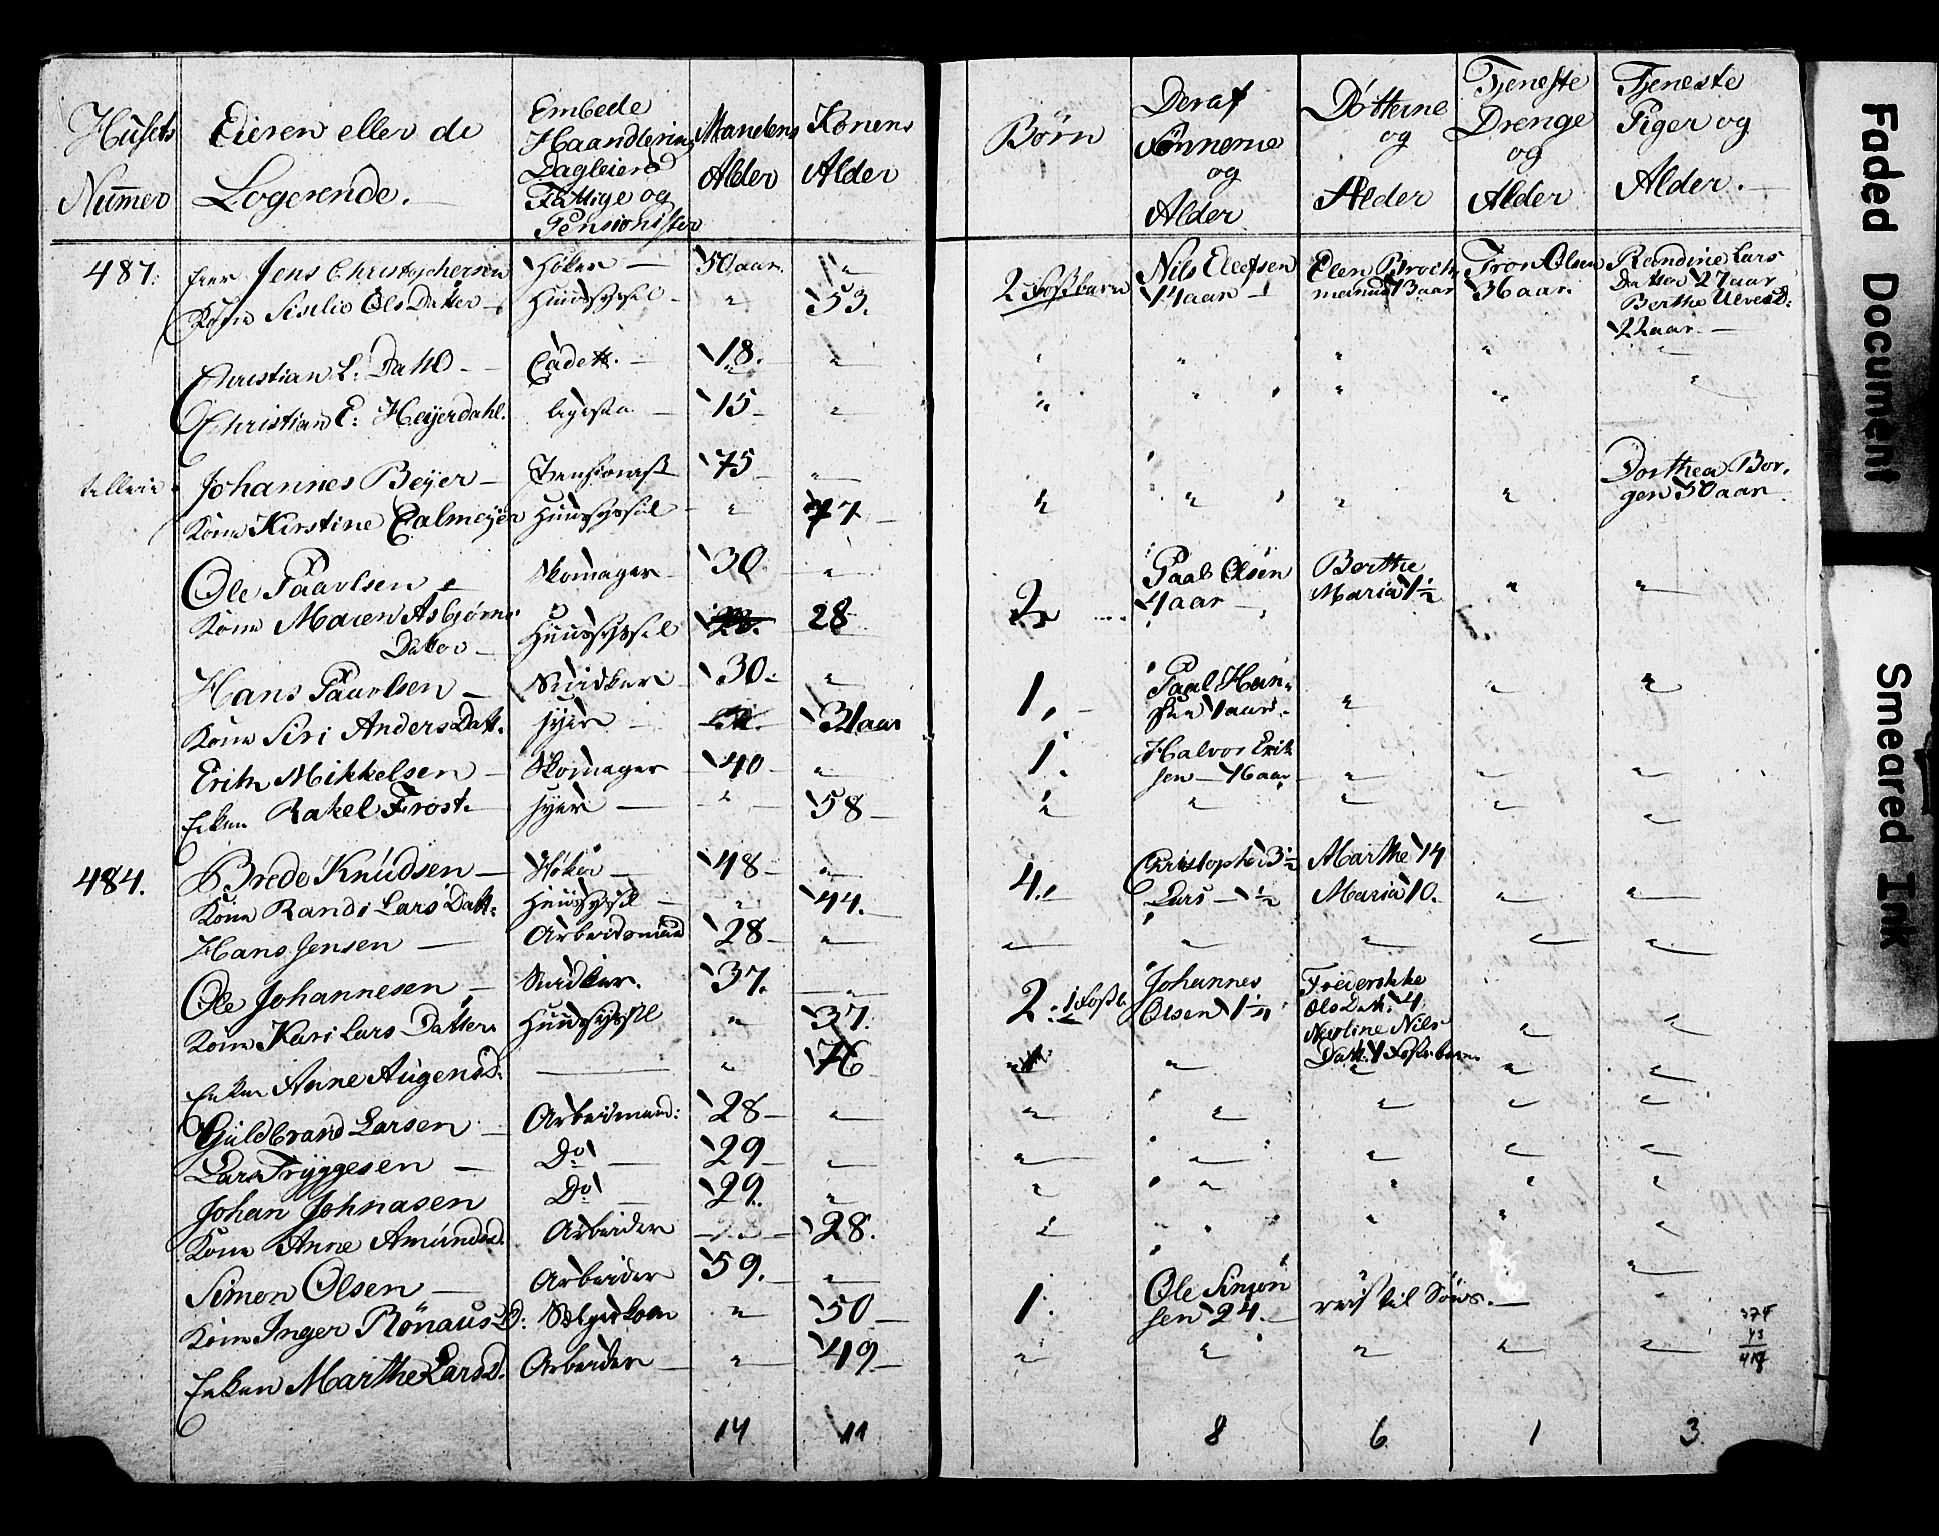 Husets Nummer | Eieren eller de Logerende. | Embede Haandtering Dagleiere Fattige og Pensionister | Mandens Alder | Konens Alder | Børn | Deraf Sønnerne og Alder | Døtterne og Alder | Tjeneste Drenge og Alder | Tjeneste Piger og Alder.
487. Eier Jens Christophersen Høker — 50 aar. " 2 Fostbarn Nils Ellefsen 14 aar — Elen 13 aar Tron Olsen 36 aar Randine Lars Datter 27 aar
Kone Siselie Ols Datter — Huussyssel — " 53. Berthe 22 aar —
Christian L: Dahl — Cadett. — 18. "
Christian E: Heyerdahl. 15 — "
Johannes Beyer — Pensionist 75 — " Dorthea Borgen 50 aar
Kone Kirstine Calmeyer Huussyssel " 77 —
Ole Paavlsen — Skomager 30 " 2 Paal Olsen 4 aar — Berthe Maria 1½ " "
Kone Maren Asbjørns Datter — Huussyssel 28
Hans Paavlsen — Snidker 30 — " 1. — Paal Hansen 1 aar. — " " "
Kone Siri Anders Datt. syer — 31 aar
Erik Mikkelsen — Skomager 40 — " 1. Halvor Eriksen — 16 aar " " "
Enken Rakel Frost. — syer — " 58 — " " " " "
484. Brede Knudsen — Høker — 48 — " 4. — Christophe 3½ Marthe 14
Kone Randi Lars Datt: Huussyssel — " 44. Lars — ½ Maria 10. " "
Hans Jensen — Arbeidsmand 28 — " " " " " "
Ole Johannesen — Snidker. 37. " 2. 1 Fostb. Johannes Olsen 1¼ Frederikke Ols Datt. 4
Kone Kari Lars Datter Huussyssel " 37. Nils Datt. 1 Fosterbarn " "
Enken Anne Augensd. — " 76 " " " "
Guldbrand Larsen — Arbeidsmand: 28 — " " " " " "
Lars Tryggesen — Do — 29 — " " " " " "
Johan Johnasen Do — 29. " " " " " "
Kone Anne Amundsd. Arbeider 28. " " " " "
Simon Olsen — Arbeider 59. — " 1. Ole Simonsen 24. — reist til Søes. — "
Kone Inger Rönaus D: " 50 —
Enken Marthe Larsd. Arbeider — " 49 — " " " " "
14 11 8 6 1 3
Faded Document
Smeared Ink